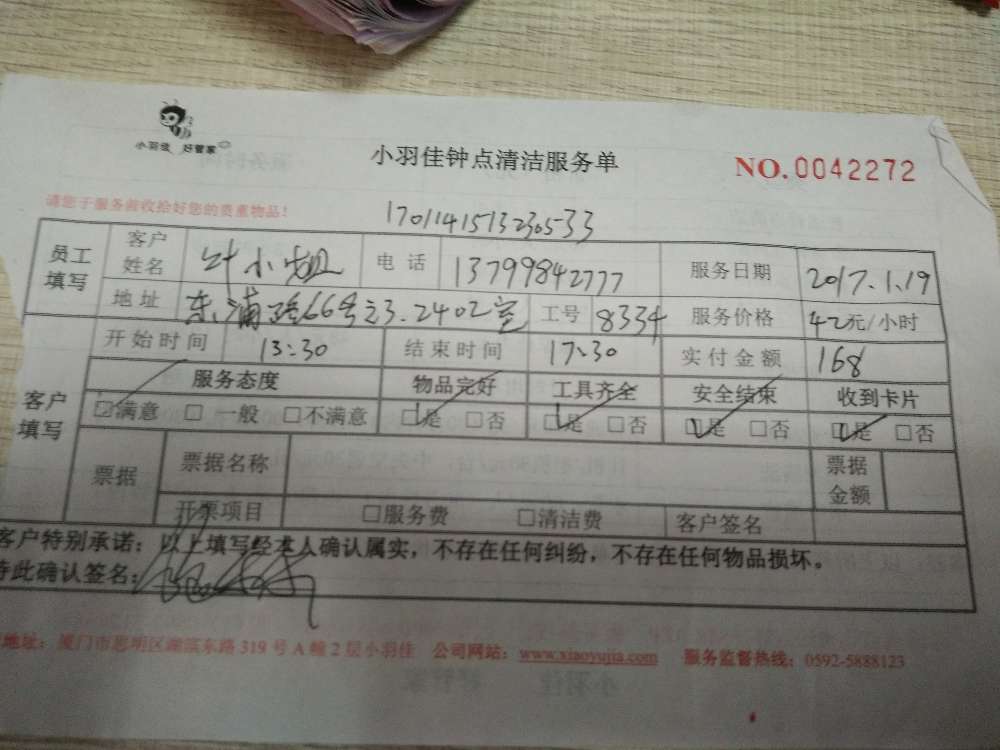 小羽佳 好管家
小羽佳钟点清洁服务单
NO.0042272
请您于服务前收拾好您的贵重物品！
17011415132305533
员工填写 客户姓名 叶小姐 电话 13799842777 服务日期 2017.1.19
地址 东浦路66号之3.2402室 工号 8334 服务价格 42元/小时
客户填写 开始时间 13:30 结束时间 17:30 实付金额 168
服务态度 物品完好 工具齐全 安全结束 收到卡片
☑满意 □一般 □不满意 ☑是 □否 ☑是 □否 ☑是 □否 ☑是 □否
票据 票据名称 票据金额
开票项目 □服务费 □清洁费 客户签名
客户特别承诺：以上填写经本人确认属实，不存在任何纠纷，不存在任何物品损坏。
特此确认签名：
地址：厦门市思明区湖滨东路319号A幢2层小羽佳 公司网站：www.xiaoyujia.com 服务监督热线：0592-5888123